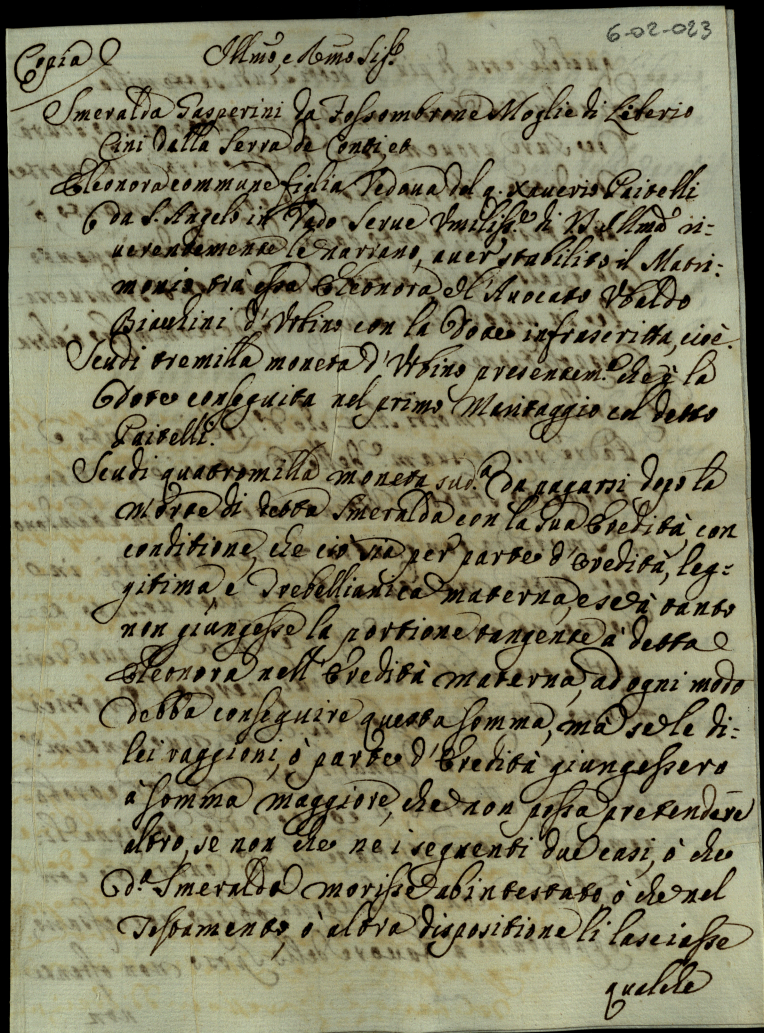 6-02-023
Copia Illmo, e Rmo Sigr
Smeralda Gasperini da Fossombrone Moglie di Liberio
Cini dalla Serra de Conti, et
Eleonora commune figlia Vedova del q. Xaverio Paitelli
da S. Angelo in Vado serve Umiliss.e di V.S. Illma ri-
verendemente le narrano, aver stabilito il Matri-
monio trà essa Eleonora, el'Avocato Ubaldo
d'Urbino con la Dote infrascritta, cioè.
Scudi tremilla moneta d'Urbino presentem.e che è la
Dote conseguita nel primo Maritaggio col detto
Paitelli.
Scudi quatromilla moneta sud.a da pagarsi dopo la
morte di detta Smeralda con la sua Eredità, con
conditione, che ciò sia per parte d'Eredità, leg-
gitima, e Trebellianica materna, e se à tanto
non giungesse la portione tangente à detta
Eleonora nell'Eredità materna, ad ogni modo
debba conseguire questa somma, mà se le di-
lei raggioni, ò parte d'Eredità giungessero
à somma maggiore, che non possa pretendere
altro, se non che ne i seguenti due casi, ò che
d.a Smeralda morisse ab intestato, ò che nel
Testamento, ò altra dispositione li lasciasse
qualche